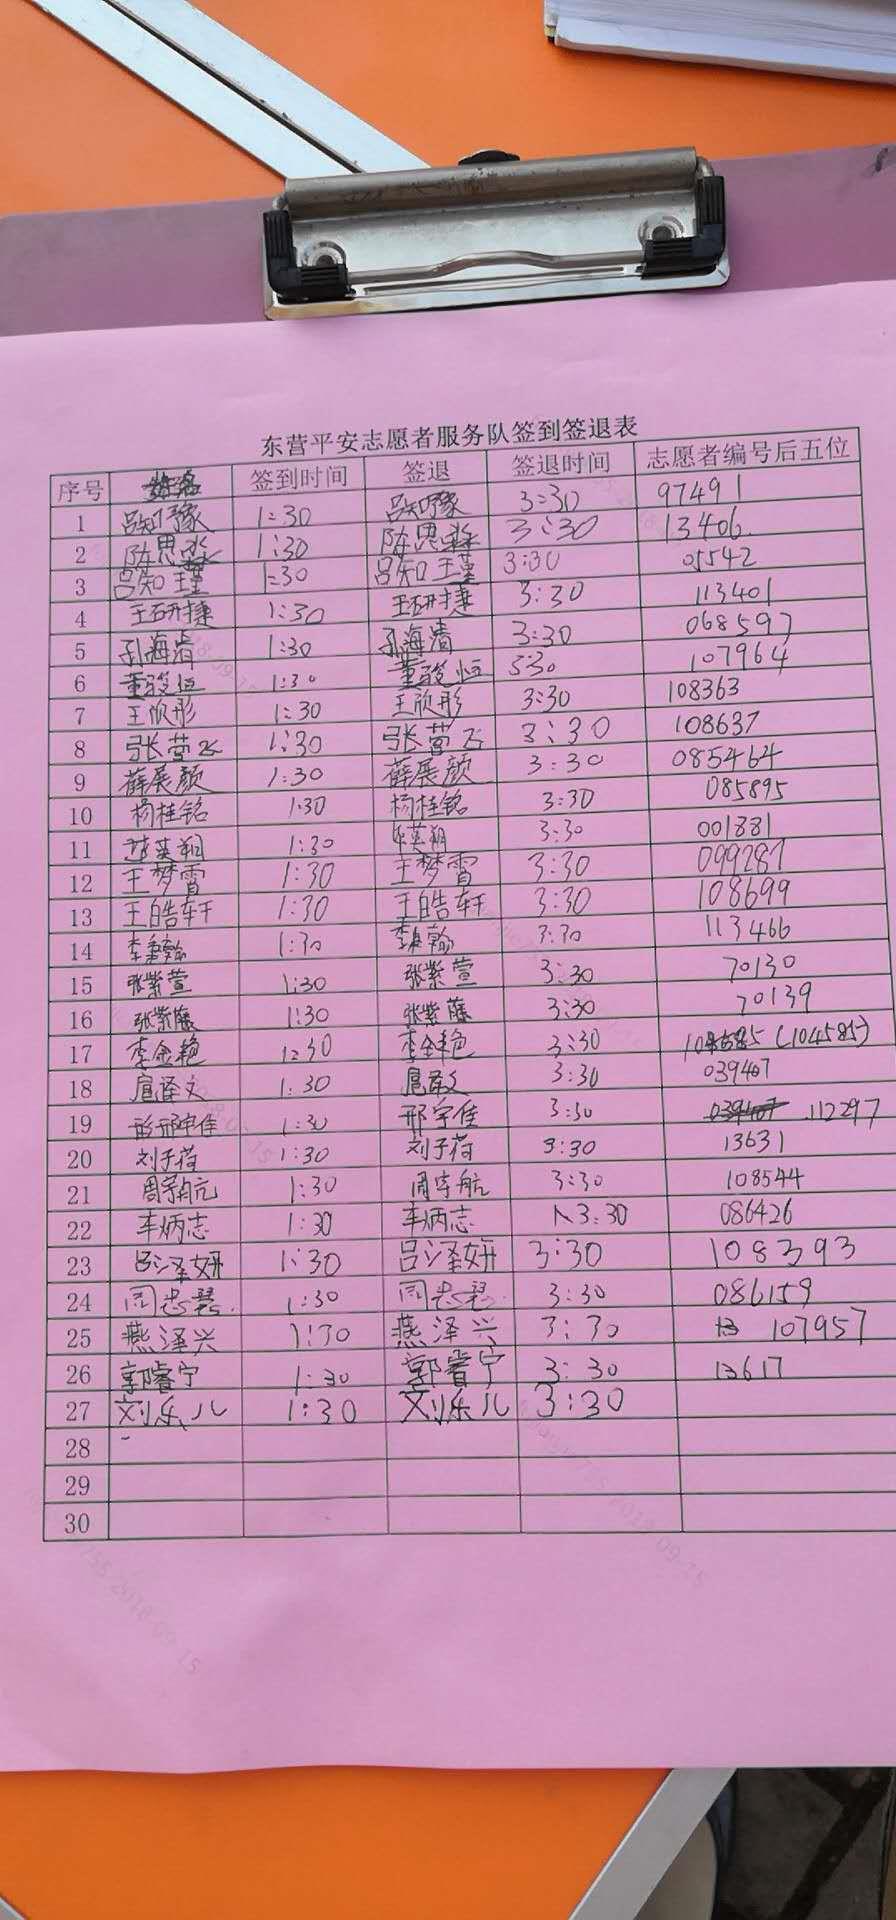 东营平安志愿者服务队签到签退表
序号 签到时间 签退 签退时间 志愿者编号后五位
1 吕知豫 1:30 吕知豫 3:30 97491
2 陈思淼 1:30 陈思淼 3:30 13406
3 吕知瑾 1:30 吕知瑾 3:30 05542
4 王研捷 1:30 王研捷 3:30 113401
5 孙海清 1:30 孙海清 3:30 068597
6 董骏恒 1:30 董骏恒 3:30 107964
7 王欣彤 1:30 王欣彤 3:30 108363
8 张营飞 1:30 张营飞 3:30 108637
9 薛展颜 1:30 薛展颜 3:30 085464
10 杨桂铭 1:30 杨桂铭 3:30 085895
11 1:30 3:30 001881
12 王梦雪 1:30 王梦雪 3:30 099287
13 王皓轩 1:30 王皓轩 3:30 108699
14 1:30 3:30 113466
15 张紫萱 1:30 张紫萱 3:30 70130
16 张紫藤 1:30 张紫藤 3:30 70139
17 李金艳 1:30 李金艳 3:30 (104585)
18 1:30 3:30 039407
19 邢宇佳 1:30 邢宇佳 3:30 112297
20 刘子荷 1:30 刘子荷 3:30 13631
21 周宇航 1:30 周宇航 3:30 108544
22 李炳志 1:30 李炳志 3:30 086426
23 吕泽妍 1:30 吕泽妍 3:30 108393
24 1:30 3:30 086159
25 燕泽兴 1:30 燕泽兴 3:30 107957
26 郭睿宁 1:30 郭睿宁 3:30 13617
27 刘乐儿 1:30 刘乐儿 3:30
28
29
30